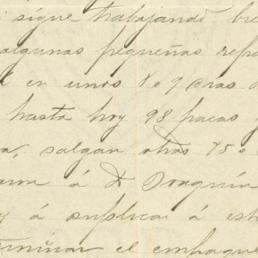 sigue trabajando bie
algunas pequeñas repa
en unos 8 o 9 dias d
hasta hoy 98 pacas y
a, salgan otras 75 o
aron á D Joaquin
y á suplica á est
terminar el empaque